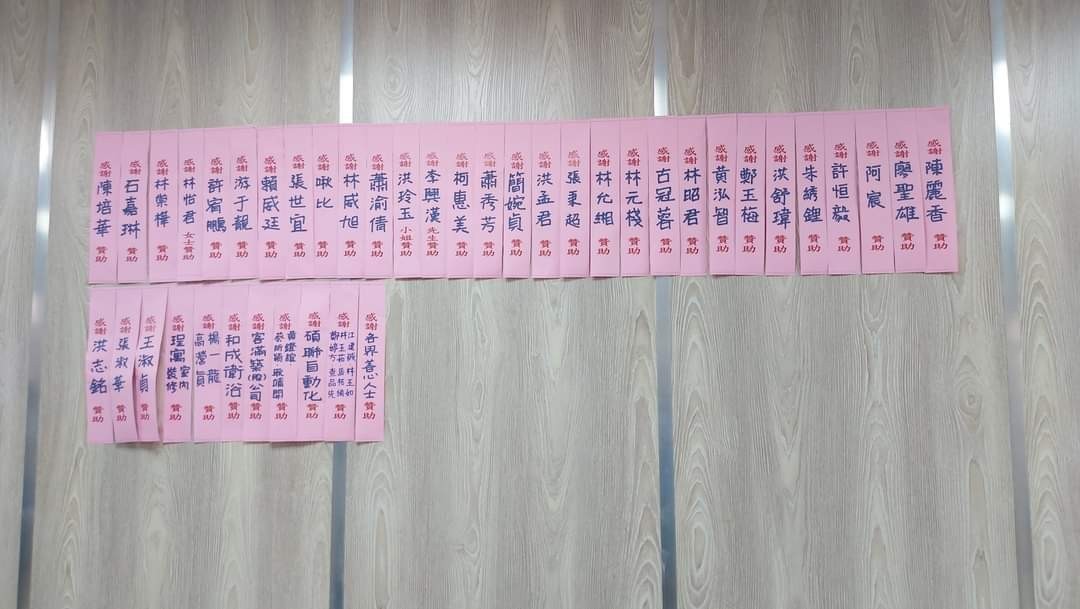 感謝 陳麗香 贊助
感謝 廖聖雄 贊助
感謝 阿宸 贊助
感謝 許恒毅 贊助
感謝 朱綉鋰 贊助
感謝 洪舒瑋 贊助
感謝 鄭玉梅 贊助
感謝 黃泓智 贊助
感謝 林昭君 贊助
感謝 古冠蓉 贊助
感謝 林元棧 贊助
感謝 林允緗 贊助
感謝 張秉超 贊助
感謝 洪孟君 贊助
感謝 簡婉貞 贊助
感謝 蕭秀芳 贊助
感謝 柯惠美 贊助
感謝 李興漢 先生贊助
感謝 洪玲玉 小姐贊助
感謝 蕭渝倩 贊助
感謝 林威旭 贊助
感謝 啾比 贊助
感謝 張世宜 贊助
感謝 賴威廷 贊助
感謝 游于靚 贊助
感謝 許宥鵬 贊助
感謝 林怡君 女士贊助
感謝 林崇樺 贊助
感謝 石嘉琳 贊助
感謝 陳培華 贊助
感謝 各界善心人士 贊助
感謝 贊助
感謝 碩聯自動化 贊助
感謝 贊助
感謝 客滿築(股)公司 贊助
感謝 和成衛浴 贊助
感謝 楊一龍 高瀅貞 贊助
感謝 珵寓室內裝修 贊助
感謝 王淑貞 贊助
感謝 張淑華 贊助
感謝 洪志銘 贊助